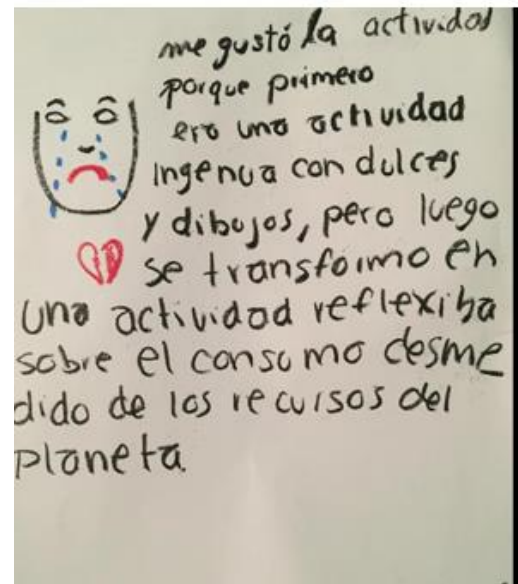 me gustó la actividad
porque primero
era una actividad
ingenua con dulces
y dibujos, pero luego
se transformo en
una actividad reflexiba
sobre el consumo desme
dido de los recursos del
planeta.